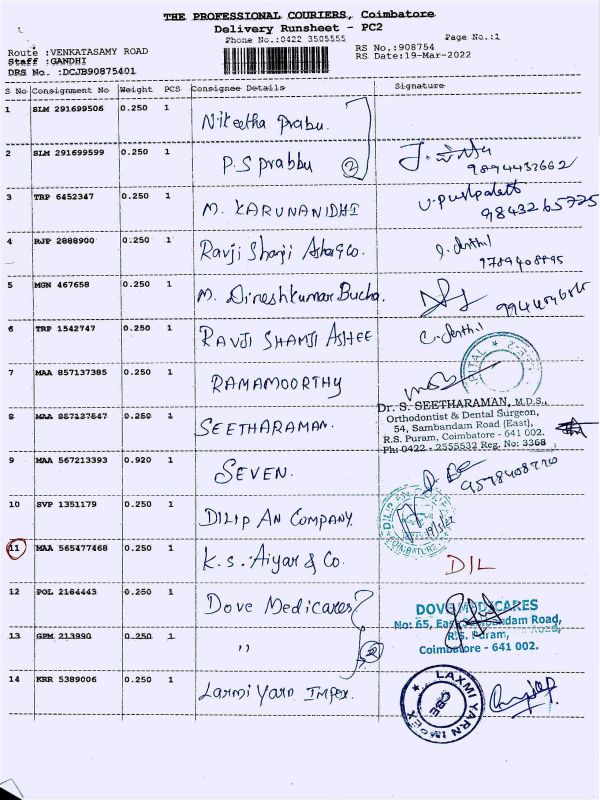 THE PROFESSIONAL COURIERS, Coimbatore
Delivery Runsheet - PC2
Phone No.:0422 3505555
Page No.:1
Route :VENKATASAMY ROAD
RS No.:908754
Staff :GANDHI
RS Date:19-Mar-2022
DRS No. :DCJB90875401
S No Consignment No Weight PCS Consignee Details Signature
1 SLM 291699506 0.250 1 Niteetha Prabu.
2 SLM 291699599 0.250 1 P.S prabbu 2
9894433662
3 TRP 6452347 0.250 1 M. KARUNANIDHI
9843265725
4 RJP 2888900 0.250 1 Ravji Shamji Ashar & Co.
9789408895
5 MGN 467658 0.250 1 M. Dineshkumar Bucha.
6 TRP 1542747 0.250 1 RAVJI SHAMJI ASHEE
7 MAA 857137385 0.250 1 RAMAMOORTHY
Dr. S. SEETHARAMAN, M.D.S.,
8 MAA 857137547 0.250 1 SEETHARAMAN.
Orthodontist & Dental Surgeon,
54, Sambandam Road (East),
R.S. Puram, Coimbatore - 641 002.
Ph: 0422 - 2555532 Reg. No: 3368
9 MAA 567213393 0.920 1 SEVEN.
9578408770
10 SVP 1351179 0.250 1 DILIP AN COMPANY
DILIP AN
19/3/22
COIMBATORE
11 MAA 565477468 0.250 1 K.S. Aiyar & Co. DIL
12 POL 2184443 0.250 1 Dove Medicares
DOVE MEDICARES
No: 65, East Sambandam Road,
13 GPM 213990 0.250 1 " 2
R.S. Puram,
Coimbatore - 641 002.
14 KRR 5389006 0.250 1 Laxmi Yarn Impex.
LAXMI YARN IMPEX
CBE